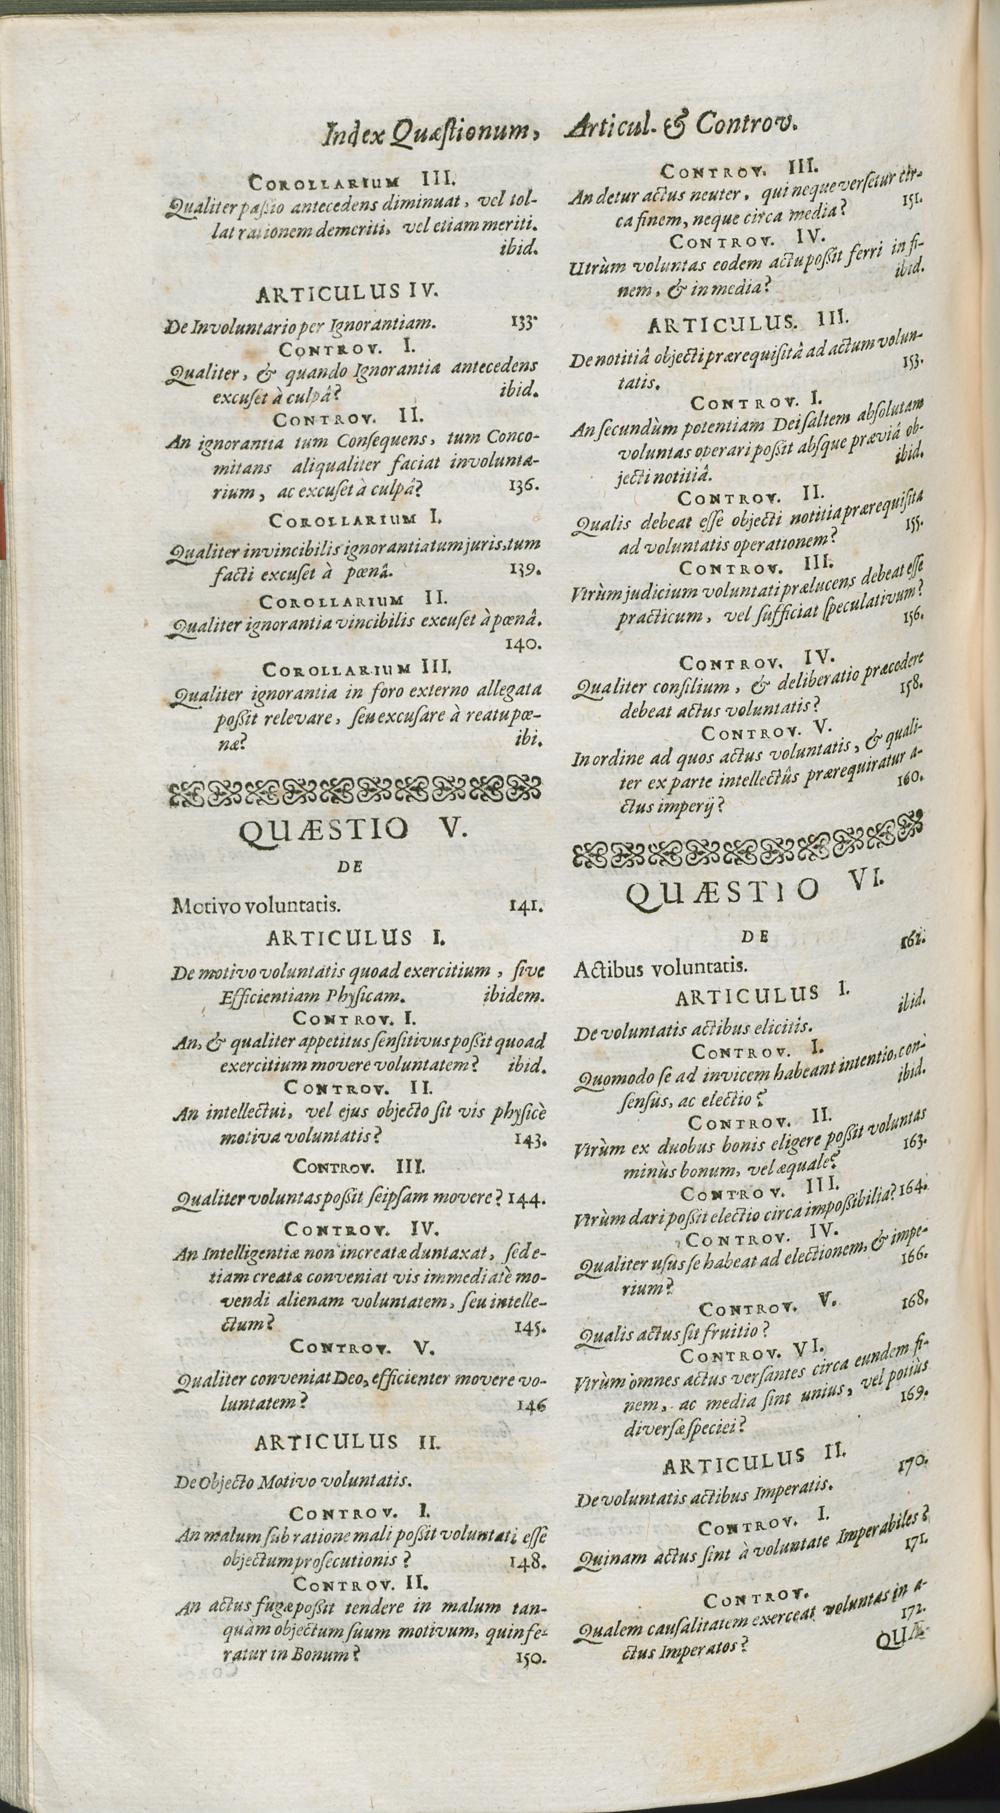 Index Quæstionum, Articul. & Controv.
COROLLARIUM III.
Qualiter paßio antecedens diminuat, vel tol-
lat rationem demeriti, vel etiam meriti.
ibid.
ARTICULUS IV.
De Involuntario per Ignorantiam. 133.
CONTROV. I.
Qualiter, & quando Ignorantia antecedens
excuset à culpâ? ibid.
CONTROV. II.
An ignorantia tum Consequens, tum Conco-
mitans aliqualiter faciat involunta-
rium, ac excuset à culpâ? 136.
COROLLARIUM I.
Qualiter invincibilis ignorantia tum juris, tum
facti excuset à pœnâ. 139.
COROLLARIUM II.
Qualiter ignorantia vincibilis excuset à pœnâ.
140.
COROLLARIUM III.
Qualiter ignorantia in foro externo allegata
poßit relevare, seu excusare à reatu pœ-
næ? ibi.
QUÆSTIO V.
DE
Motivo voluntatis. 141.
ARTICULUS I.
De motivo voluntatis quoad exercitium, sive
Efficientiam Physicam. ibidem.
CONTROV. I.
An, & qualiter appetitus sensitivus poßit quoad
exercitium movere voluntatem? ibid.
CONTROV. II.
An intellectui, vel ejus objecto sit vis physicè
motiva voluntatis? 143.
CONTROV. III.
Qualiter voluntas poßit seipsam movere? 144.
CONTROV. IV.
An Intelligentiæ non increatæ duntaxat, sed e-
tiam creatæ conveniat vis immediatè mo-
vendi alienam voluntatem, seu intelle-
ctum? 145.
CONTROV. V.
Qualiter conveniat Deo, efficienter movere vo-
luntatem? 146
ARTICULUS II.
De Objecto Motivo voluntatis.
CONTROV. I.
An malum sub ratione mali poßit voluntati esse
objectum prosecutionis? 148.
CONTROV. II.
An actus fugæ poßit tendere in malum tan-
quàm objectum suum motivum, quin fe-
ratur in Bonum? 150.
CONTROV. III.
An detur actus neuter, qui neque versetur cir-
ca finem, neque circa media? 151.
CONTROV. IV.
Utrùm voluntas eodem actu poßit ferri in fi-
nem, & in media? ibid.
ARTICULUS. III.
De notitiâ objecti prærequisitâ ad actum volun-
tatis. 153.
CONTROV. I.
An secundùm potentiam Dei saltem absolutam
voluntas operari poßit absque præviâ ob-
jecti notitiâ. ibid.
CONTROV. II.
Qualis debeat esse objecti notitia prærequisita
ad voluntatis operationem? 155.
CONTROV. III.
Vtrùm judicium voluntati prælucens debeat esse
practicum, vel sufficiat speculativum?
156.
CONTROV. IV.
Qualiter consilium, & deliberatio præcedere
debeat actus voluntatis? 158.
CONTROV. V.
In ordine ad quos actus voluntatis, & quali-
ter ex parte intellectûs prærequiratur a-
ctus imperij? 160.
QUÆSTIO VI.
DE
Actibus voluntatis. 162.
ARTICULUS I.
De voluntatis actibus elicitis. ibid.
CONTROV. I.
Quomodo se ad invicem habeant intentio, con-
sensus, ac electio? ibid.
CONTROV. II.
Vtrùm ex duobus bonis eligere poßit voluntas
minùs bonum, vel æquale? 163.
CONTROV. III.
Vtrùm dari poßit electio circa impoßibilia? 164.
CONTROV. IV.
Qualiter usus se habeat ad electionem, & impe-
rium? 166.
CONTROV. V.
Qualis actus sit fruitio? 168.
CONTROV. VI.
Vtrùm omnes actus versantes circa eundem fi-
nem, ac media sint unius, vel potiùs
diversæ speciei? 169.
ARTICULUS II.
De voluntatis actibus Imperatis. 170.
CONTROV. I.
Quinam actus sint à voluntate Imperabiles?
171.
CONTROV.
Qualem causalitatem exerceat voluntas in a-
ctus Imperatos? 172.
QUÆ-